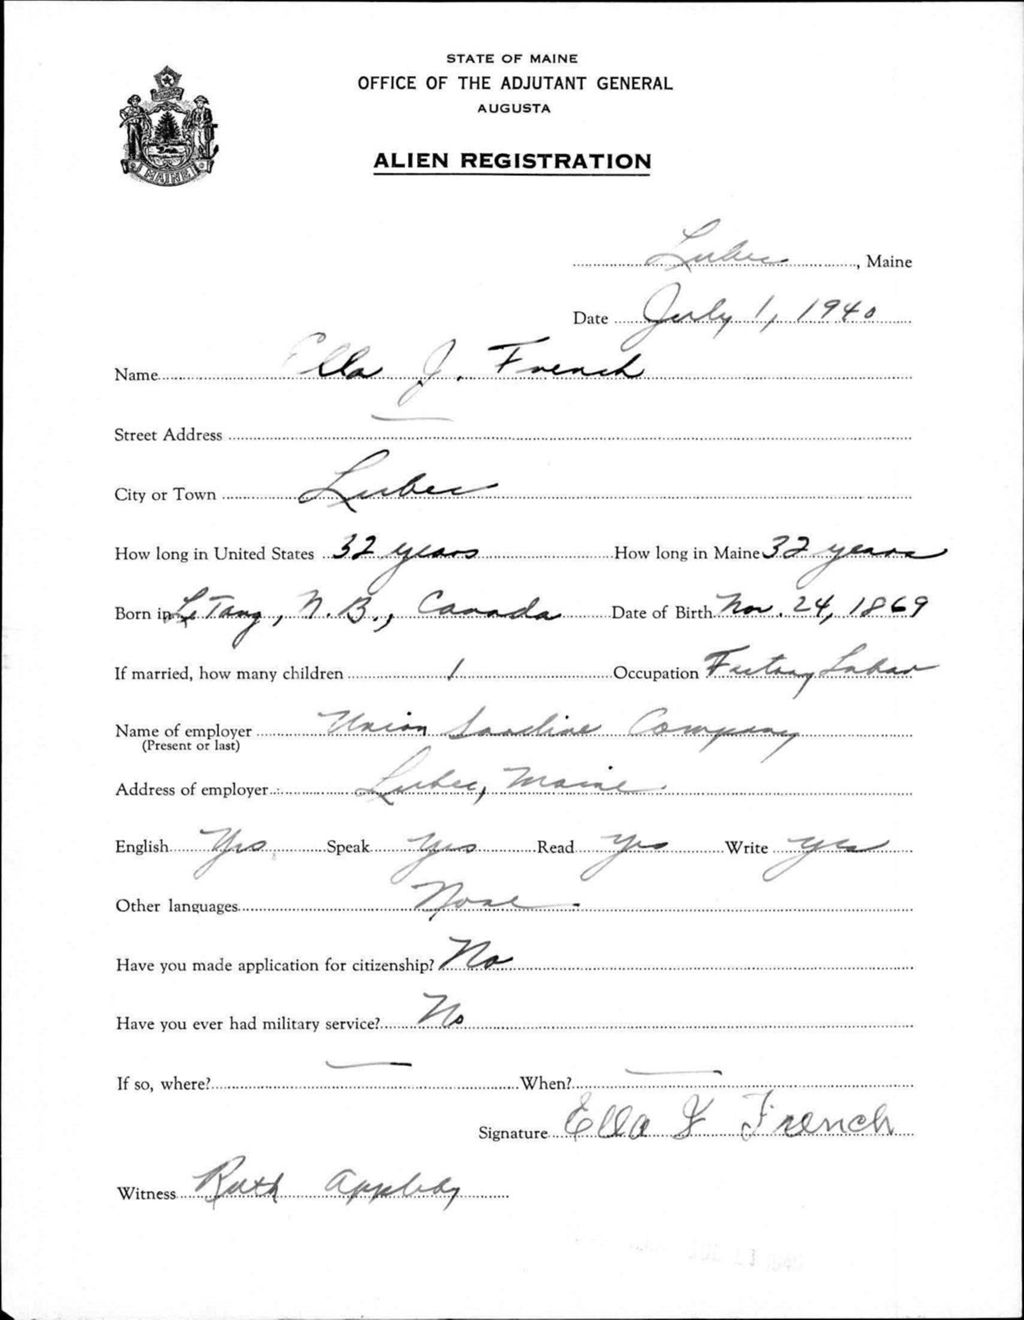 STATE OF MAINE
OFFICE OF THE ADJUTANT GENERAL
AUGUSTA
ALIEN REGISTRATION
MAINE
Lubec, Maine
Date July 1, 1940
Name Ella J. French
Street Address —
City or Town Lubec
How long in United States 32 years How long in Maine 32 years
Born in LeTang, N.B., Canada Date of Birth Nov. 24, 1869
If married, how many children 1 Occupation Factory Labor
Name of employer Union Sardine Company
(Present or last)
Address of employer Lubec, Maine
English Yes Speak Yes Read Yes Write Yes
Other languages None
Have you made application for citizenship? No
Have you ever had military service? No
If so, where? — When? —
Signature Ella J French
Witness Ruth Appleby